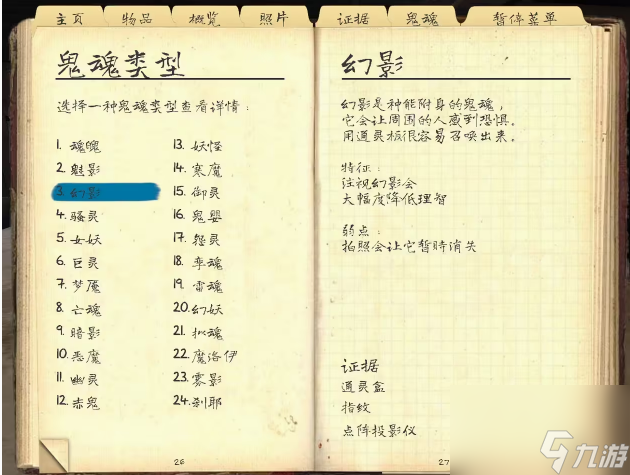 主页
物品
概览
照片
证据
鬼魂
暂停菜单
鬼魂类型
选择一种鬼魂类型查看详情：
1. 魂魄
2. 魅影
3. 幻影
4. 骚灵
5. 女妖
6. 巨灵
7. 梦魇
8. 亡魂
9. 暗影
10. 恶魔
11. 幽灵
12. 赤鬼
13. 妖怪
14. 寒魔
15. 御灵
16. 鬼婴
17. 怨灵
18. 孪魂
19. 雷魂
20. 幻妖
21. 拟魂
22. 魔洛伊
23. 雾影
24. 刹耶
26
幻影
幻影是种能附身的鬼魂，
它会让周围的人感到恐惧。
用通灵板很容易召唤出来。
特征：
注视幻影会
大幅度降低理智
弱点：
拍照会让它暂时消失
证据
通灵盒
指纹
点阵投影仪
27
九游